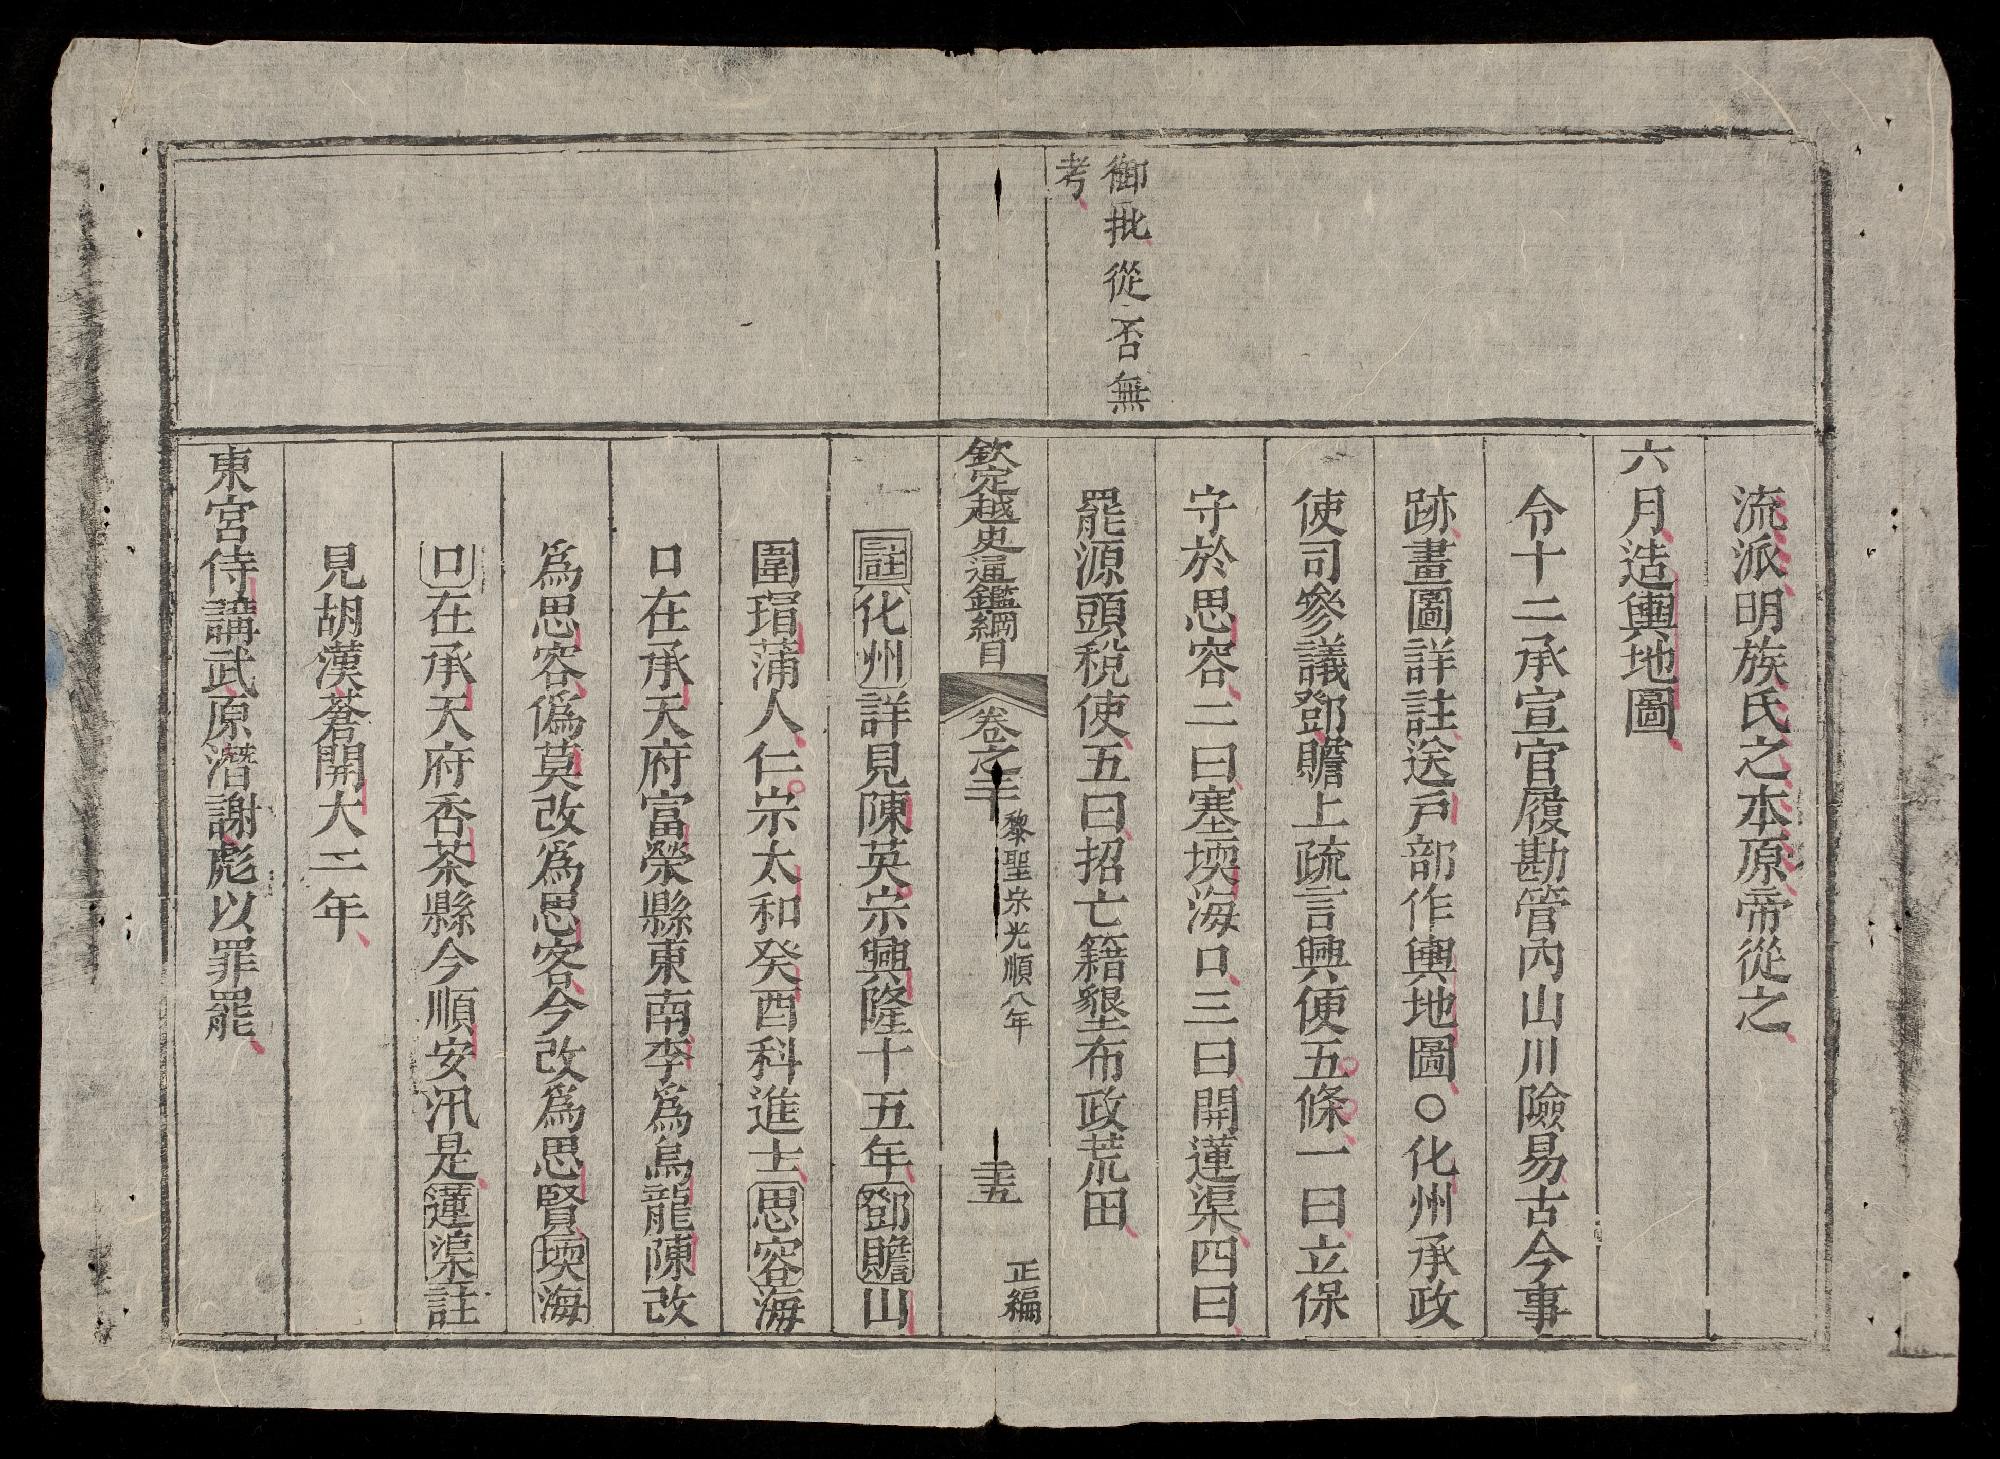 御批從否無
考
流派明族氏之本原帝從之
六月造輿地圖
令十二承宣官履勘管內山川險易古今事
跡畫圖詳註送戸部作輿地圖○化州承政
使司參議鄧贍上疏言興便五條一曰立保
守於思容二曰塞堧海口三曰開蓮渠四曰
罷源頭稅使五曰招亡籍墾布政荒田
欽定越史通鑑綱目 卷之二十 黎聖宗光順八年 三十五 正編
註化州詳見陳英宗興隆十五年鄧贍山
圍瑁蒲人仁宗太和癸酉科進士思容海
口在承天府富榮縣東南李爲烏龍陳改
爲思容僞莫改爲思客今改爲思賢堧海
口在承天府香茶縣今順安汛是蓮渠註
見胡漢蒼開大二年
東宮侍講武原潛謝彪以罪罷